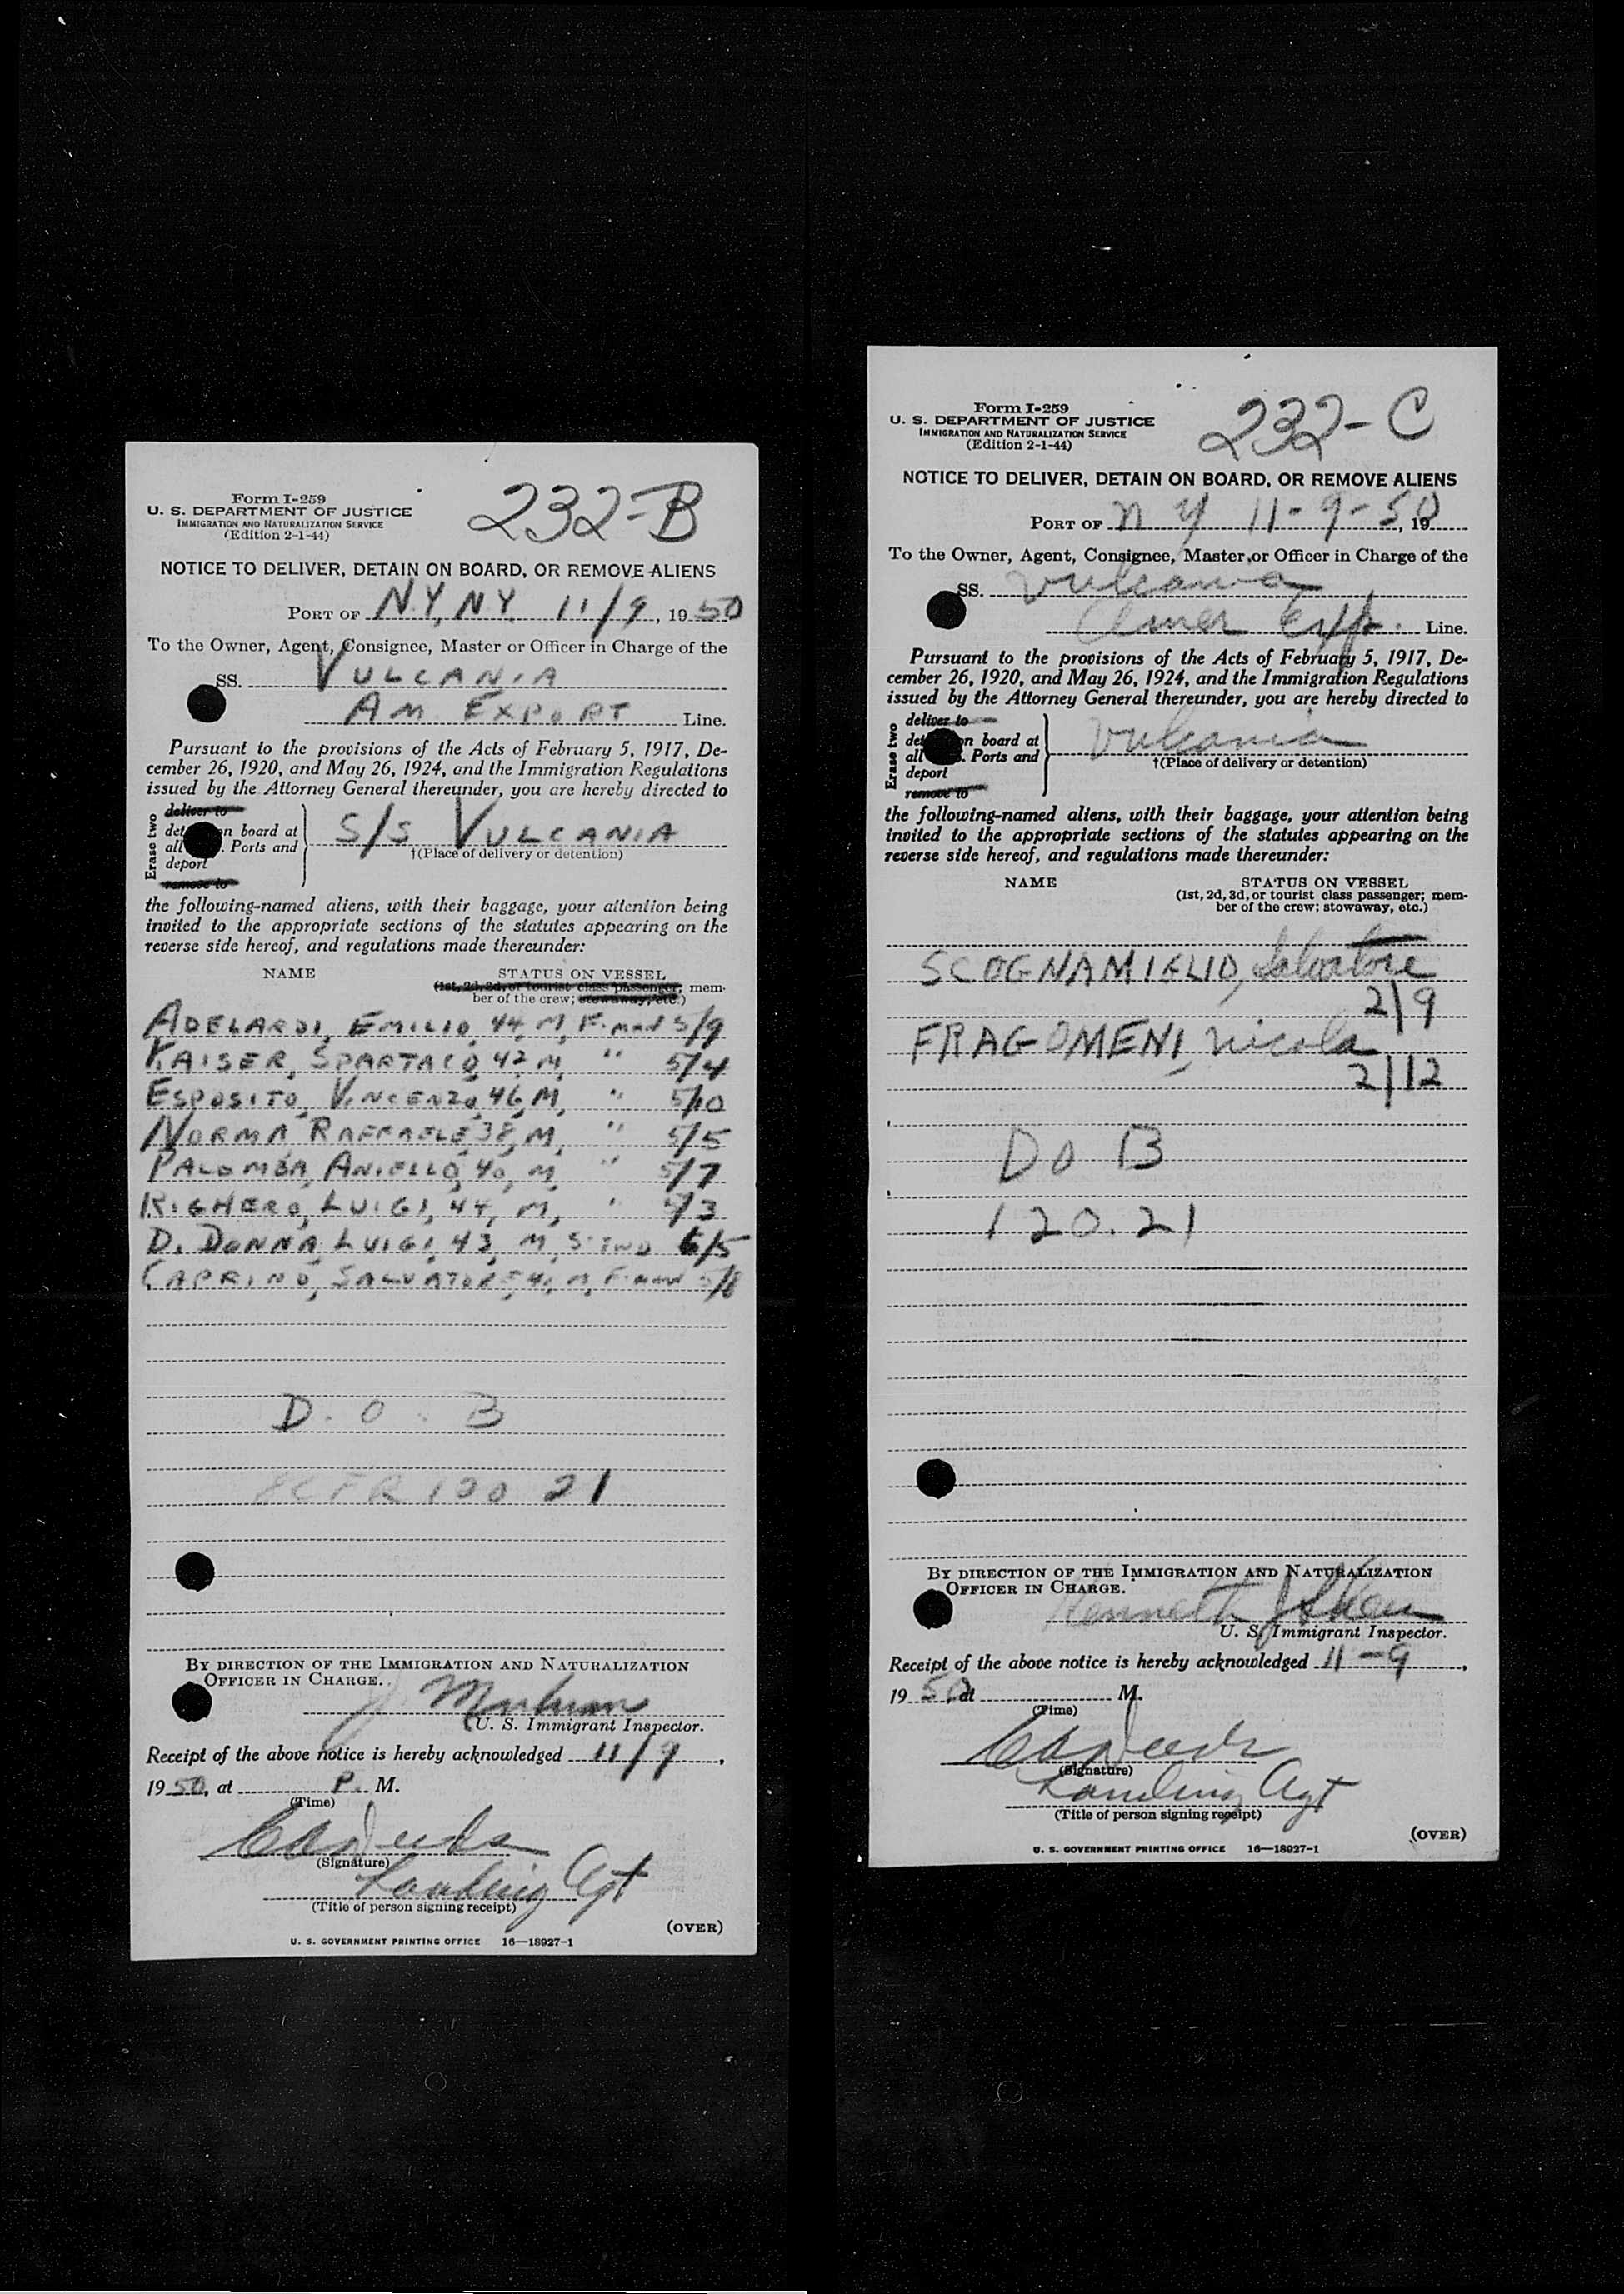 Form I-259
U. S. DEPARTMENT OF JUSTICE
IMMIGRATION AND NATURALIZATION SERVICE
(Edition 2-1-44)
232-B
NOTICE TO DELIVER, DETAIN ON BOARD, OR REMOVE ALIENS
PORT OF N.Y, N.Y. 11/9, 1950
To the Owner, Agent, Consignee, Master or Officer in Charge of the
SS. VULCANIA
AM. EXPORT Line.
Pursuant to the provisions of the Acts of February 5, 1917, De-
cember 26, 1920, and May 26, 1924, and the Immigration Regulations
issued by the Attorney General thereunder, you are hereby directed to
Erase two
deliver to
det n board at
all . Ports and
deport
remove to
S/S VULCANIA
†(Place of delivery or detention)
the following-named aliens, with their baggage, your attention being
invited to the appropriate sections of the statutes appearing on the
reverse side hereof, and regulations made thereunder:
NAME STATUS ON VESSEL
(1st, 2d, 3d, or tourist class passenger; mem-
ber of the crew; stowaway, etc.)
ADELARDI, EMILIO, 44, M, F.man 5/9
KAISER, SPARTACO, 42, M, " 5/4
ESPOSITO, VINCENZO, 46, M, " 5/10
NORMA RAFFAELE 38, M, " 5/5
PALOMBA, ANIELLO, 40, M, " 5/7
RIGHERO, LUIGI, 44, M, " 5/3
D. DONNA, LUIGI, 43, M, 6/5
CAPRINO, SALVATORE, M, F.man 5/8
D. O. B
8CFR 120 21
BY DIRECTION OF THE IMMIGRATION AND NATURALIZATION
OFFICER IN CHARGE.
U. S. Immigrant Inspector.
Receipt of the above notice is hereby acknowledged 11/9,
1950, at P. M.
(Time)
(Signature)
Landing Agt
(Title of person signing receipt)
(OVER)
U. S. GOVERNMENT PRINTING OFFICE 16—18927-1
Form I-259
U. S. DEPARTMENT OF JUSTICE
IMMIGRATION AND NATURALIZATION SERVICE
(Edition 2-1-44)
232-C
NOTICE TO DELIVER, DETAIN ON BOARD, OR REMOVE ALIENS
PORT OF N Y 11-9-50, 19
To the Owner, Agent, Consignee, Master or Officer in Charge of the
SS. Vulcania
Amer Exp. Line.
Pursuant to the provisions of the Acts of February 5, 1917, De-
cember 26, 1920, and May 26, 1924, and the Immigration Regulations
issued by the Attorney General thereunder, you are hereby directed to
Erase two
deliver to
det n board at
all . Ports and
deport
remove to
Vulcania
†(Place of delivery or detention)
the following-named aliens, with their baggage, your attention being
invited to the appropriate sections of the statutes appearing on the
reverse side hereof, and regulations made thereunder:
NAME STATUS ON VESSEL
(1st, 2d, 3d, or tourist class passenger; mem-
ber of the crew; stowaway, etc.)
SCOGNAMIGLIO, Salvatore
2/9
FRAGOMENI, Nicola
2/12
DO B
120.21
BY DIRECTION OF THE IMMIGRATION AND NATURALIZATION
OFFICER IN CHARGE.
Kenneth J
U. S. Immigrant Inspector.
Receipt of the above notice is hereby acknowledged 11-9,
1950, at M.
(Time)
(Signature)
Landing Agt
(Title of person signing receipt)
(OVER)
U. S. GOVERNMENT PRINTING OFFICE 16—18927-1